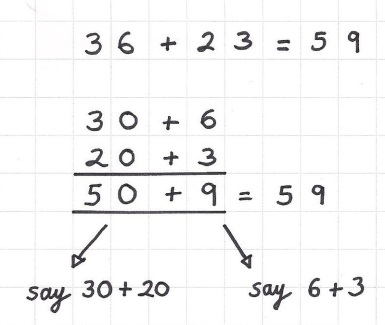 36 + 23 = 59
30 + 6
20 + 3
50 + 9 = 59
say 30+20 say 6+3